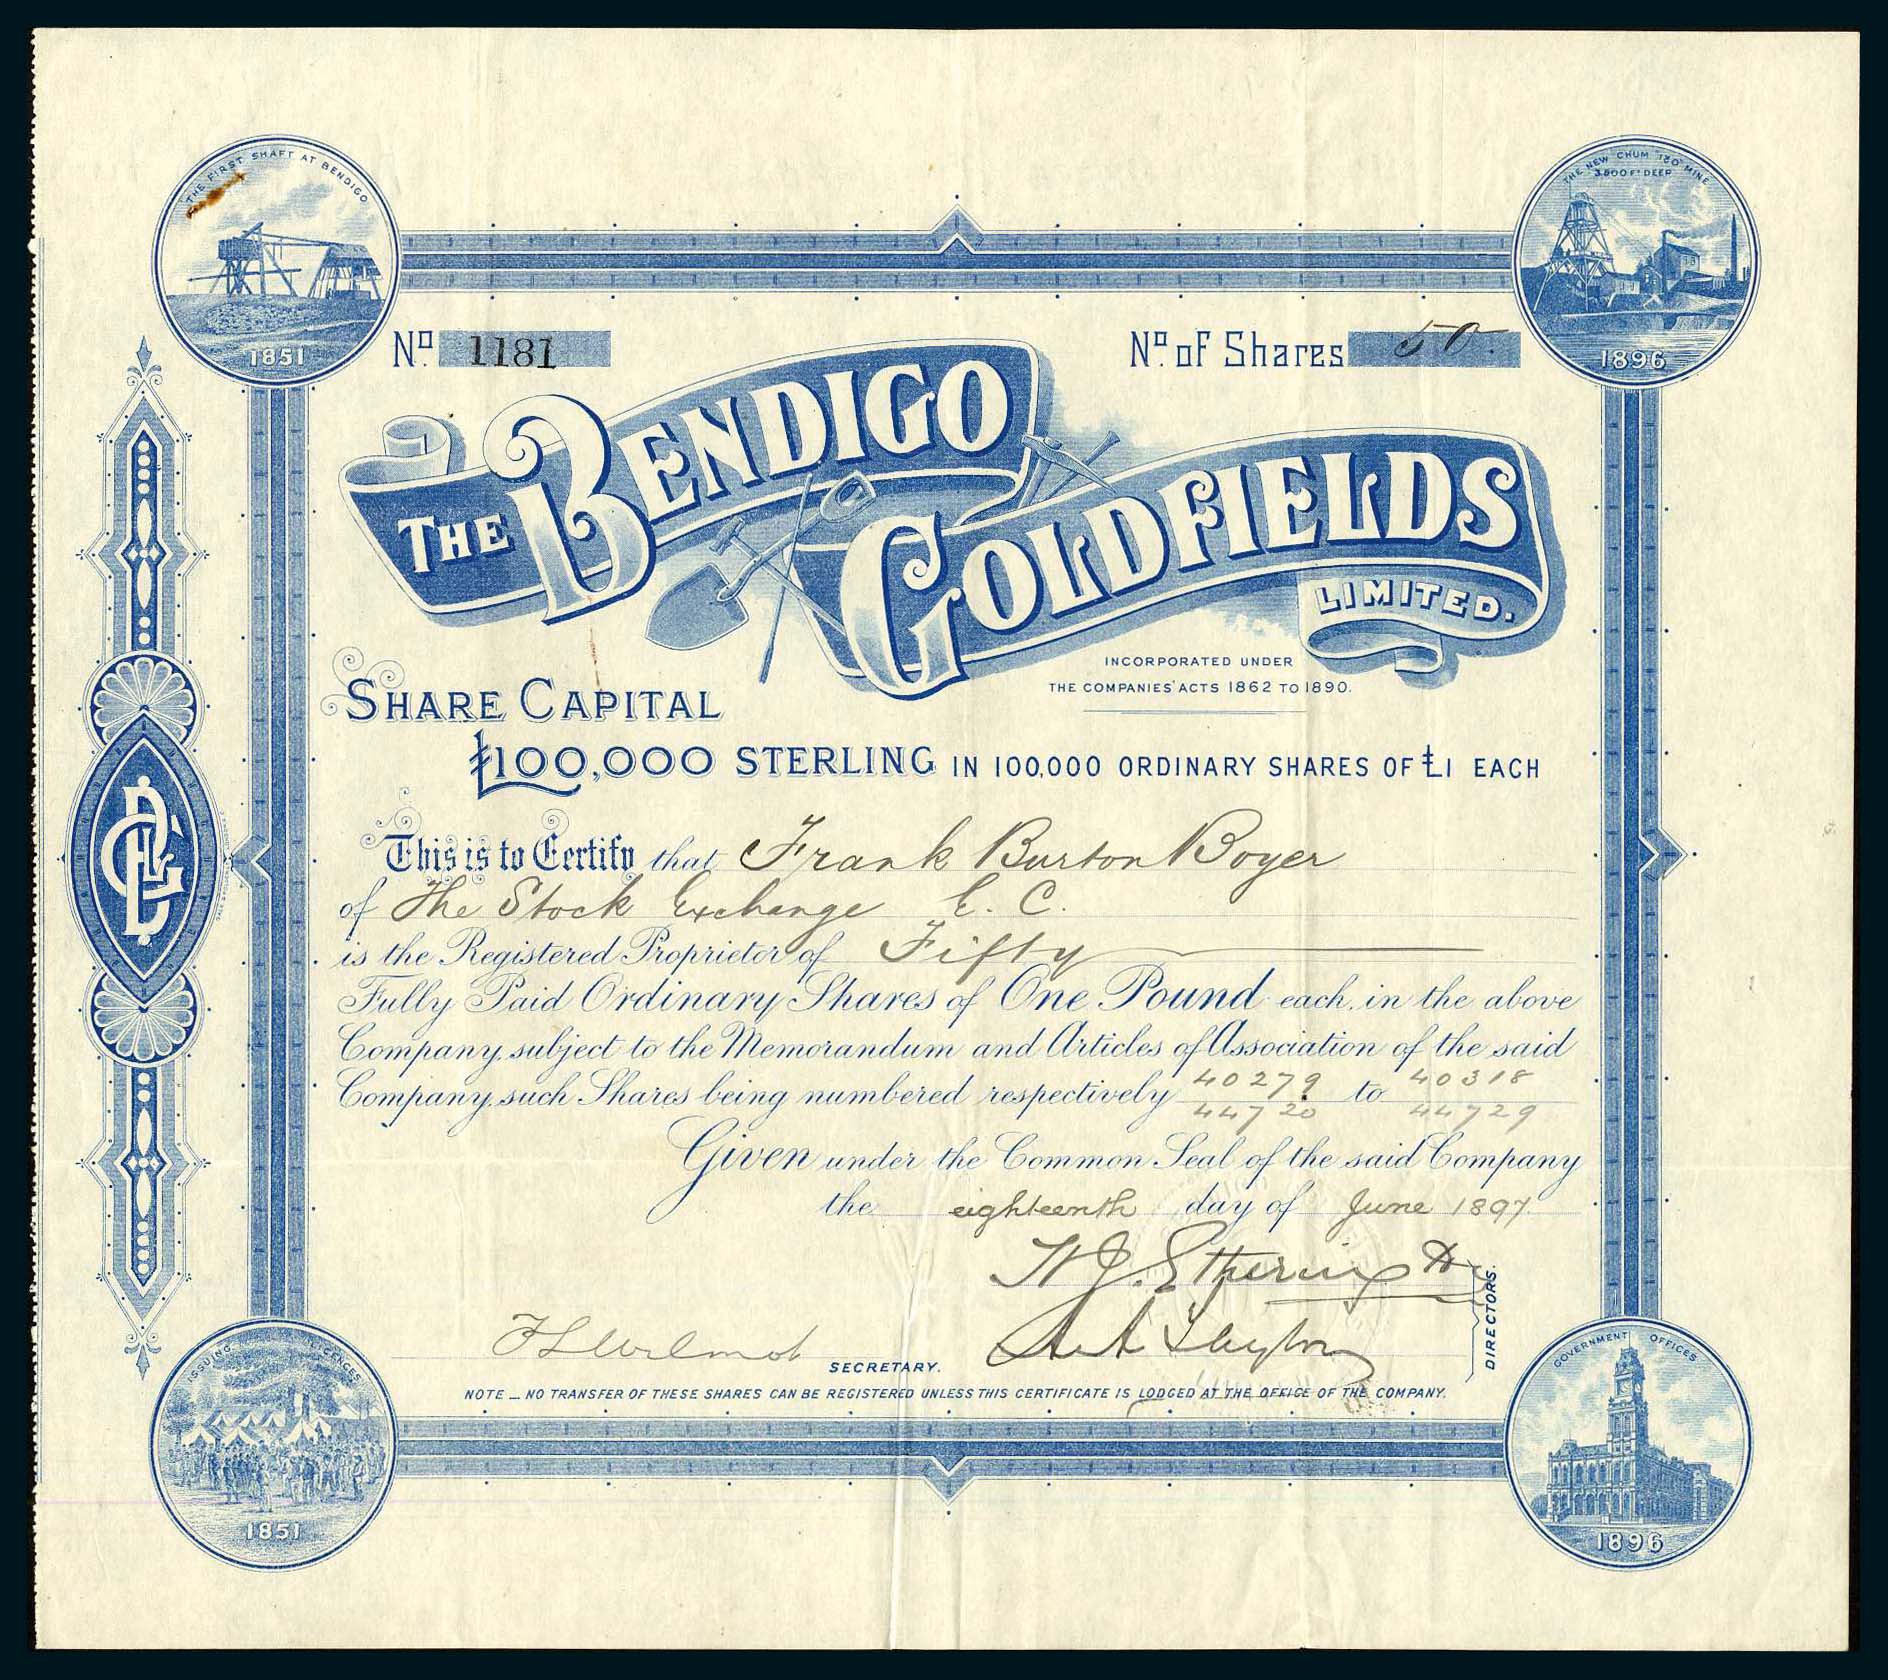 THE FIRST SHAFT AT BENDIGO
1851
THE NEW CHUM "180" MINE
3,500 FT DEEP
1896
No. 1181
No. of Shares 50.
THE BENDIGO
GOLDFIELDS
LIMITED.
INCORPORATED UNDER
THE COMPANIES' ACTS 1862 TO 1890.
SHARE CAPITAL
£100,000 STERLING IN 100,000 ORDINARY SHARES OF £1 EACH
This is to Certify that Frank Burton Boyer
of The Stock Exchange E. C.
is the Registered Proprietor of Fifty
Fully Paid Ordinary Shares of One Pound each, in the above
Company, subject to the Memorandum and Articles of Association of the said
Company, such Shares being numbered respectively 40279 to 40318
44720 44729
Given under the Common Seal of the said Company
the eighteenth day of June 1897.
W J. Etherington
DIRECTORS.
SECRETARY.
NOTE _ NO TRANSFER OF THESE SHARES CAN BE REGISTERED UNLESS THIS CERTIFICATE IS LODGED AT THE OFFICE OF THE COMPANY.
ISSUING LICENCES
1851
GOVERNMENT OFFICES
1896